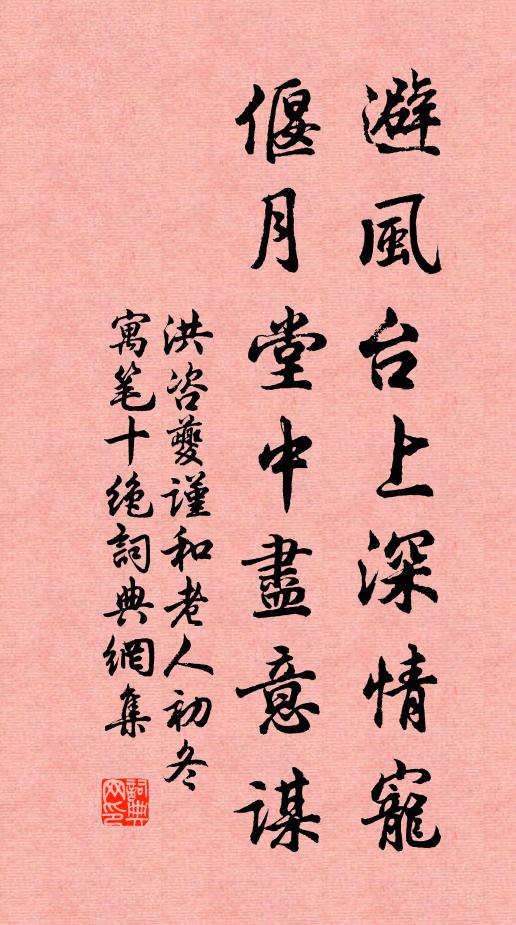 避風台上深情寵
偃月堂中盡意謀
洪咨夔謹和老人初冬
寓笔十絶詞典網集
詞典網印